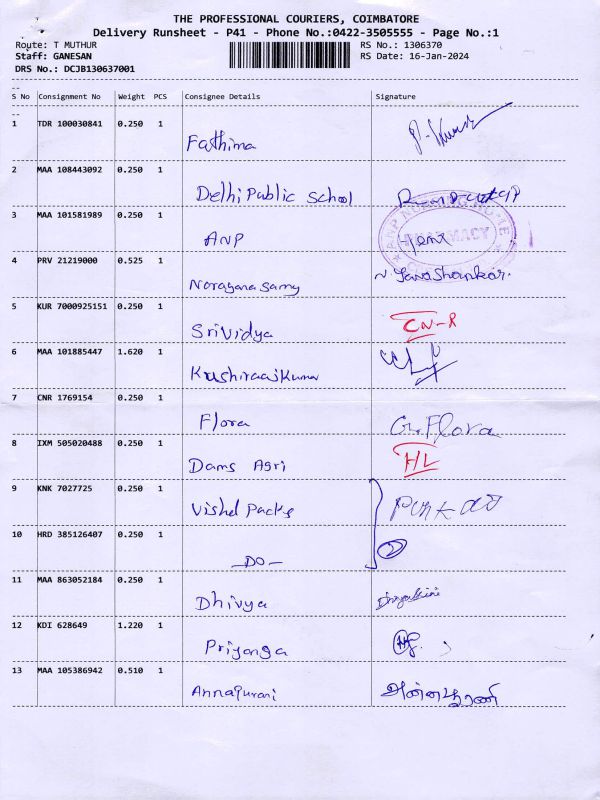 THE PROFESSIONAL COURIERS, COIMBATORE
Delivery Runsheet - P41 - Phone No.:0422-3505555 - Page No.:1
Route: T MUTHUR RS No.: 1306370
Staff: GANESAN RS Date: 16-Jan-2024
DRS No.: DCJB130637001
S No Consignment No Weight PCS Consignee Details Signature
1 TDR 100030841 0.250 1 Fathima
2 MAA 108443092 0.250 1 Delhi Public School
3 MAA 101581989 0.250 1 ANP PHARMACY
4 PRV 21219000 0.525 1 Narayanasamy
5 KUR 7000925151 0.250 1 SriVidya CN-R
6 MAA 101885447 1.620 1 Kushiraajkumar
7 CNR 1769154 0.250 1 Flora G. Flora
8 IXM 505020488 0.250 1 Dams Agri HL
9 KNK 7027725 0.250 1 Vishal Packs
10 HRD 385126407 0.250 1 —DO— 2
11 MAA 863052184 0.250 1 Dhivya
12 KDI 628649 1.220 1 Priyanga
13 MAA 105386942 0.510 1 Annapurani அன்னபூரணி